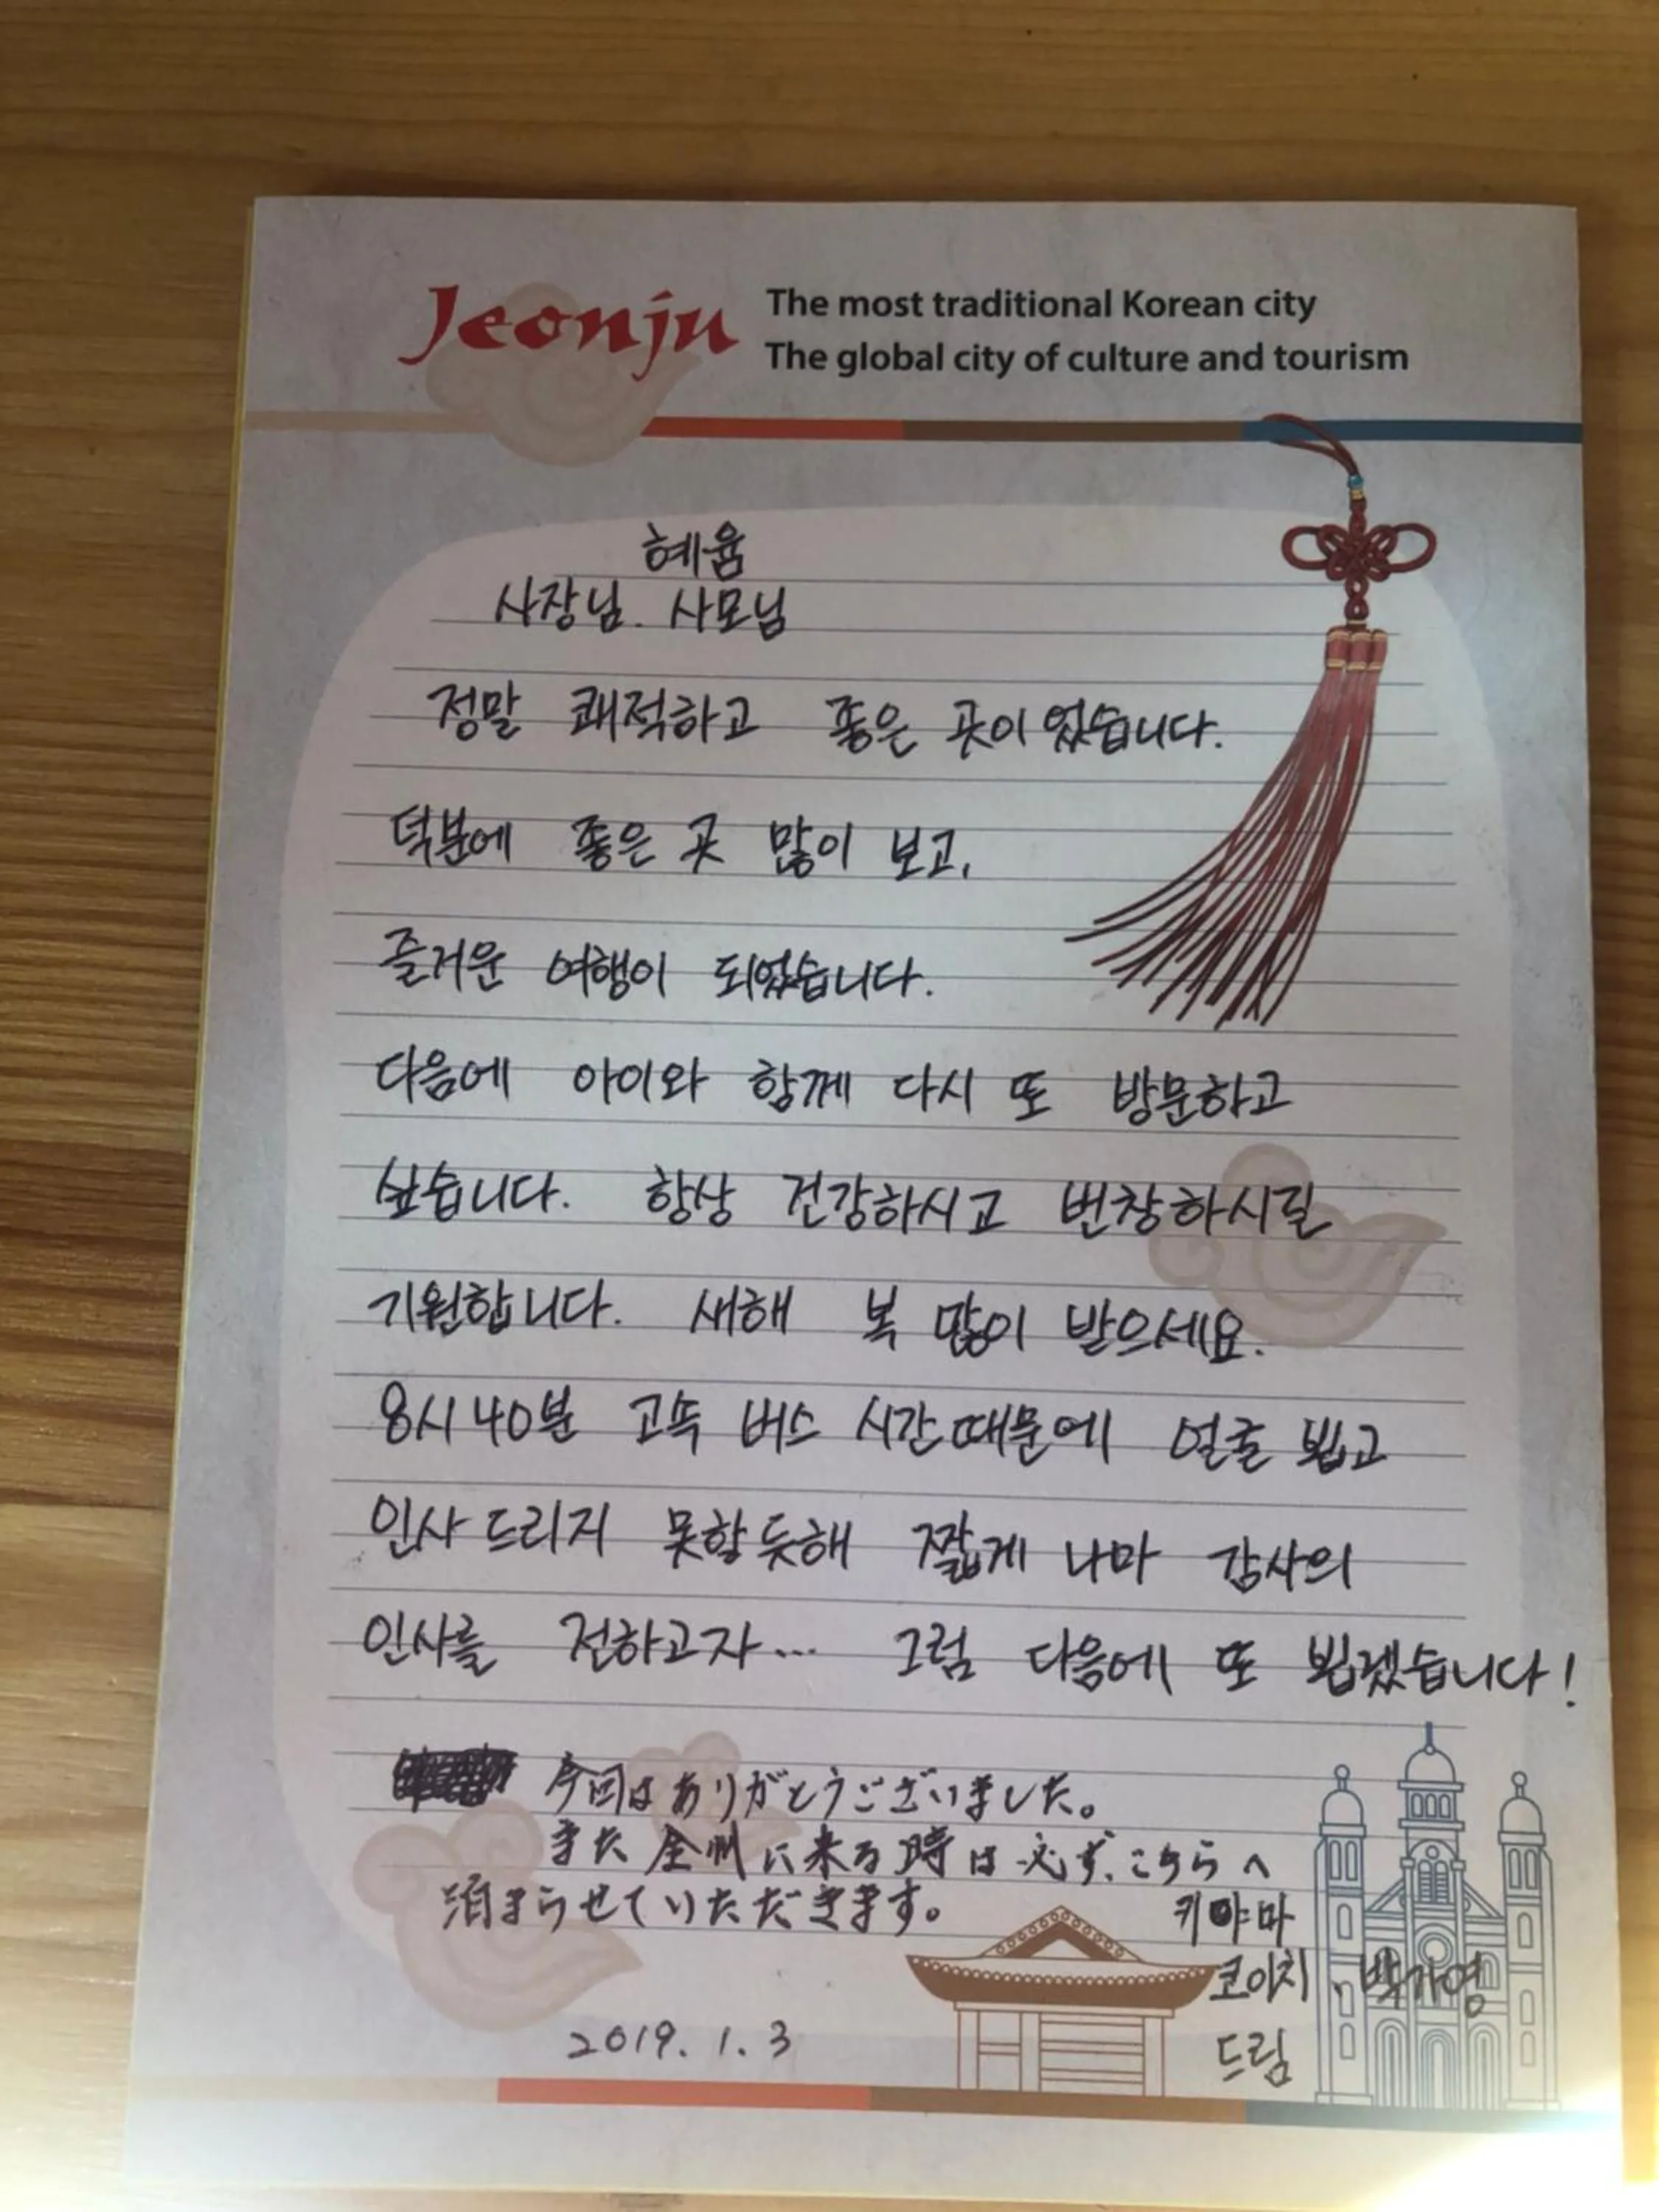 Jeonju
The most traditional Korean city
The global city of culture and tourism
혜윰
사장님. 사모님
정말 쾌적하고 좋은 곳이었습니다.
덕분에 좋은 곳 많이 보고,
즐거운 여행이 되었습니다.
다음에 아이와 함께 다시 또 방문하고
싶습니다. 항상 건강하시고 번창하시길
기원합니다. 새해 복 많이 받으세요.
8시 40분 고속 버스 시간때문에 얼굴 뵙고
인사드리지 못할듯해 짧게 나마 감사의
인사를 전하고자... 그럼 다음에 또 뵙겠습니다!
今回はありがとうございました。
また 全州に来る時は必ず、こちらへ
泊まらせていただきます。
키야마
코이치, 박가영
드림
2019. 1. 3